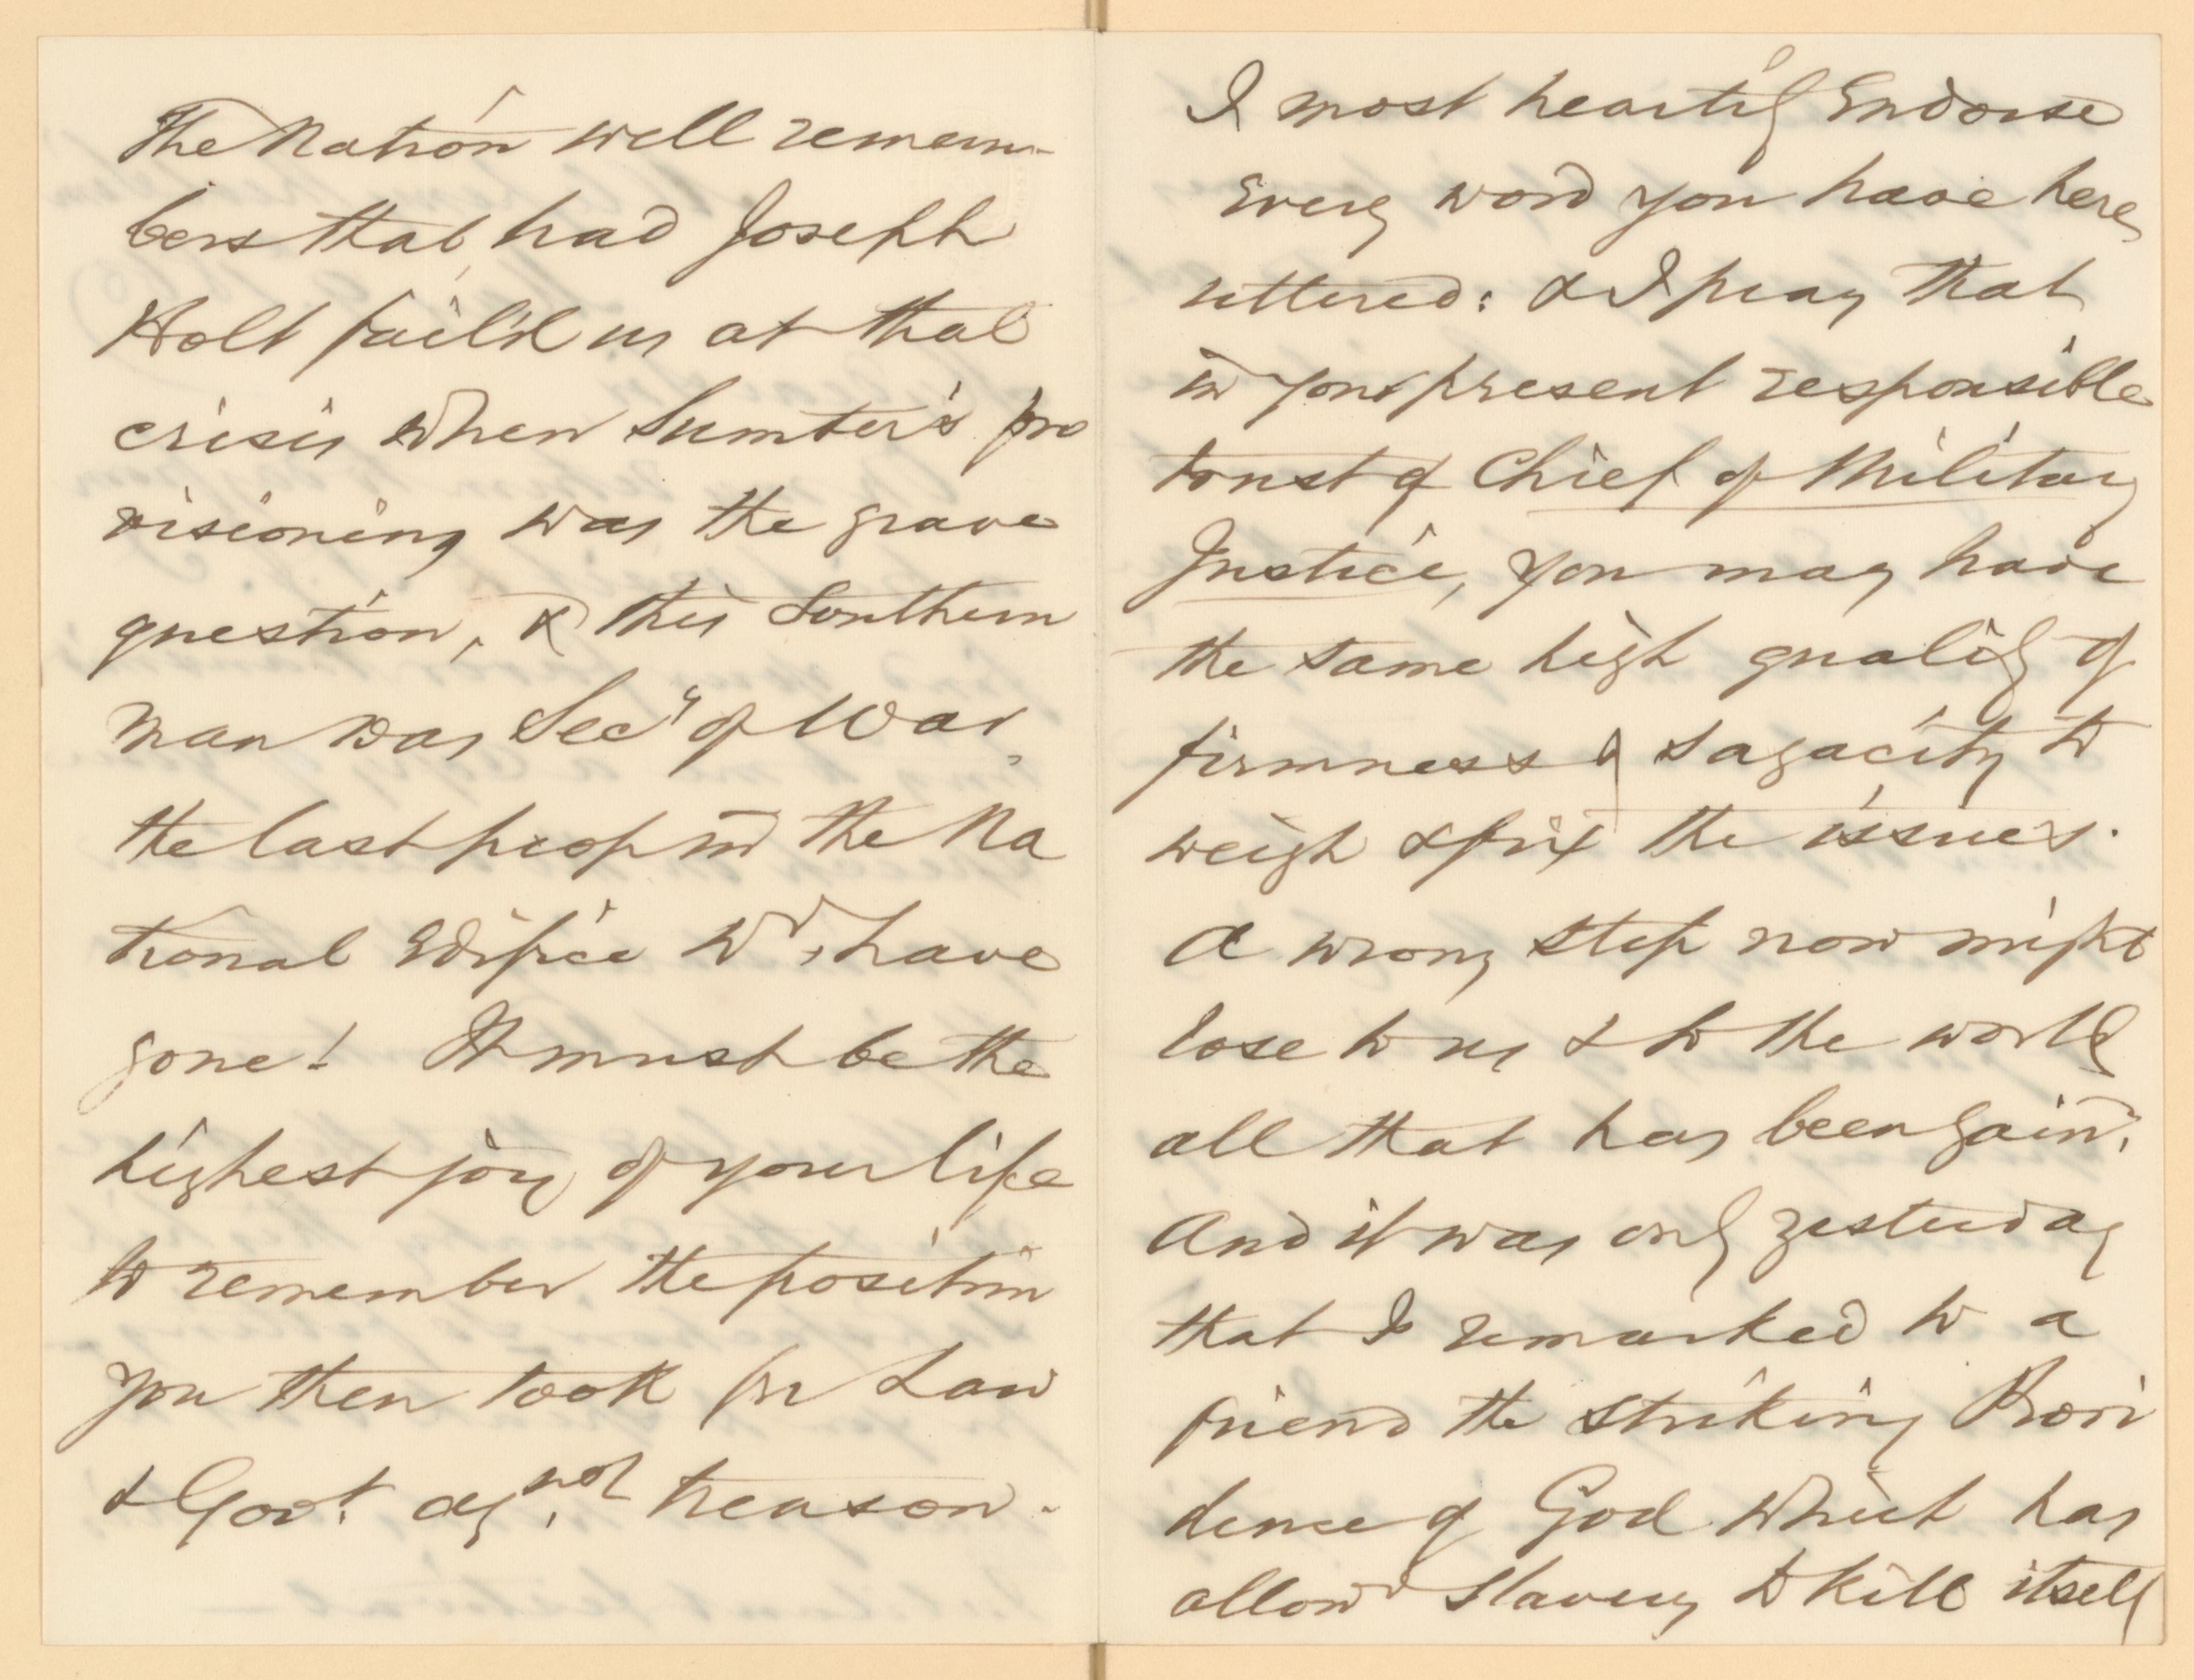 The Nation well remem-
bers that, had Joseph
Holt fail'd us at that
crisis when Sumter's pro
visioning was the grave
question, & this Southern
man was Secy of War,
the last prop in the Na
tional Edifice wd, have
gone! It must be the
highest joy of your life
to remember the position
you then took for Law
& Govt. agnst treason.
I most heartily Endorse
Every word you have here
uttered: & I pray that
in your present responsible
trust of Chief of Military
Justice, you may have
the same high quality of
firmness & sagacity to
weigh & fix the issues.
A wrong step now might
lose to us & to the world
all that has been gain'd.
And it was only yesterday
that I remarked to a
friend the striking Provi
dence of God which has
allowd Slavery to kill itself